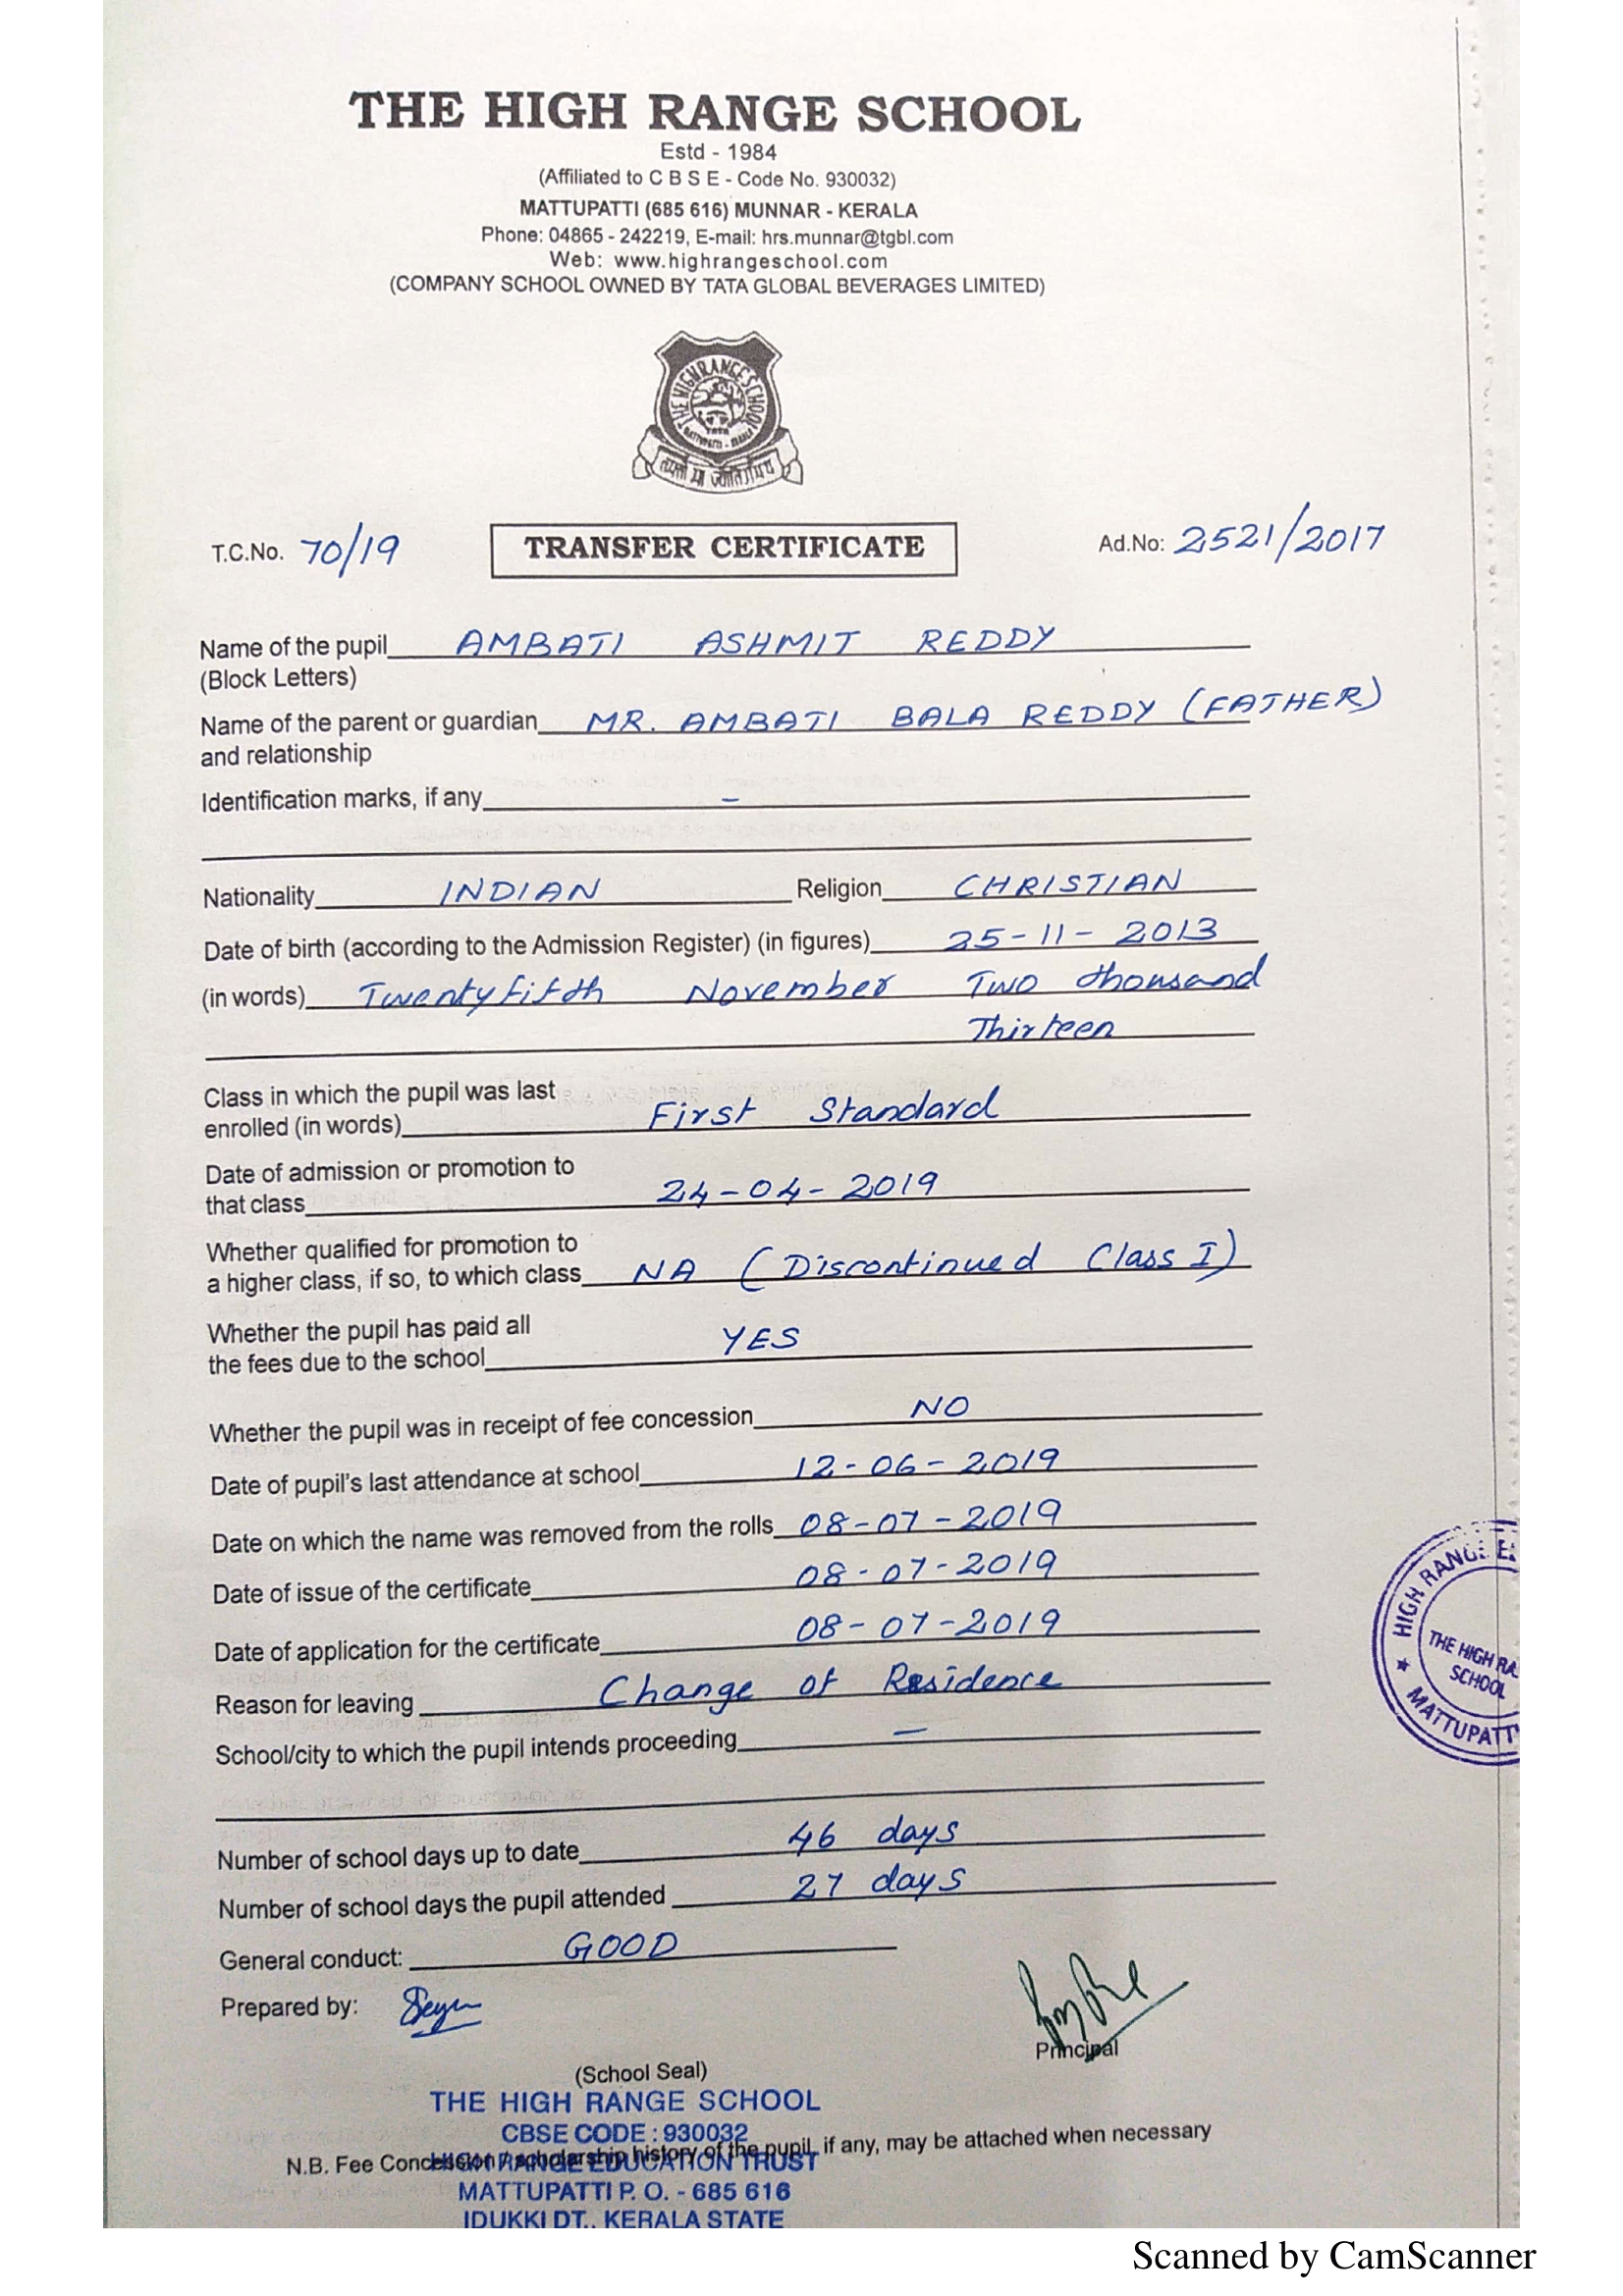 THE HIGH RANGE SCHOOL
Estd - 1984
(Affiliated to C B S E - Code No. 930032)
MATTUPATTI (685 616) MUNNAR - KERALA
Phone: 04865 - 242219, E-mail: hrs.munnar@tgbl.com
Web: www.highrangeschool.com
(COMPANY SCHOOL OWNED BY TATA GLOBAL BEVERAGES LIMITED)
THE HIGH RANGE SCHOOL
TATA
MATTUPATTI - MUNNAR
तमसो मा ज्योतिर्गमय
T.C.No. 70/19 TRANSFER CERTIFICATE Ad.No: 2521/2017
Name of the pupil AMBATI ASHMIT REDDY
(Block Letters)
Name of the parent or guardian MR. AMBATI BALA REDDY (FATHER)
and relationship
Identification marks, if any –
Nationality INDIAN Religion CHRISTIAN
Date of birth (according to the Admission Register) (in figures) 25-11-2013
(in words) Twentyfifth November Two thousand
Thirteen
Class in which the pupil was last
enrolled (in words) First Standard
Date of admission or promotion to
that class 24-04-2019
Whether qualified for promotion to
a higher class, if so, to which class NA (Discontinued Class I)
Whether the pupil has paid all
the fees due to the school YES
Whether the pupil was in receipt of fee concession NO
Date of pupil's last attendance at school 12-06-2019
Date on which the name was removed from the rolls 08-07-2019
Date of issue of the certificate 08-07-2019
Date of application for the certificate 08-07-2019
Reason for leaving Change of Residence
School/city to which the pupil intends proceeding –
Number of school days up to date 46 days
Number of school days the pupil attended 27 days
General conduct: GOOD
Prepared by:
Principal
HIGH RANGE E
THE HIGH RA
SCHOOL
MATTUPATT
(School Seal)
THE HIGH RANGE SCHOOL
CBSE CODE : 930032
N.B. Fee Concession / scholarship history of the pupil, if any, may be attached when necessary
HIGH RANGE EDUCATION TRUST
MATTUPATTI P. O. - 685 616
IDUKKI DT., KERALA STATE
Scanned by CamScanner